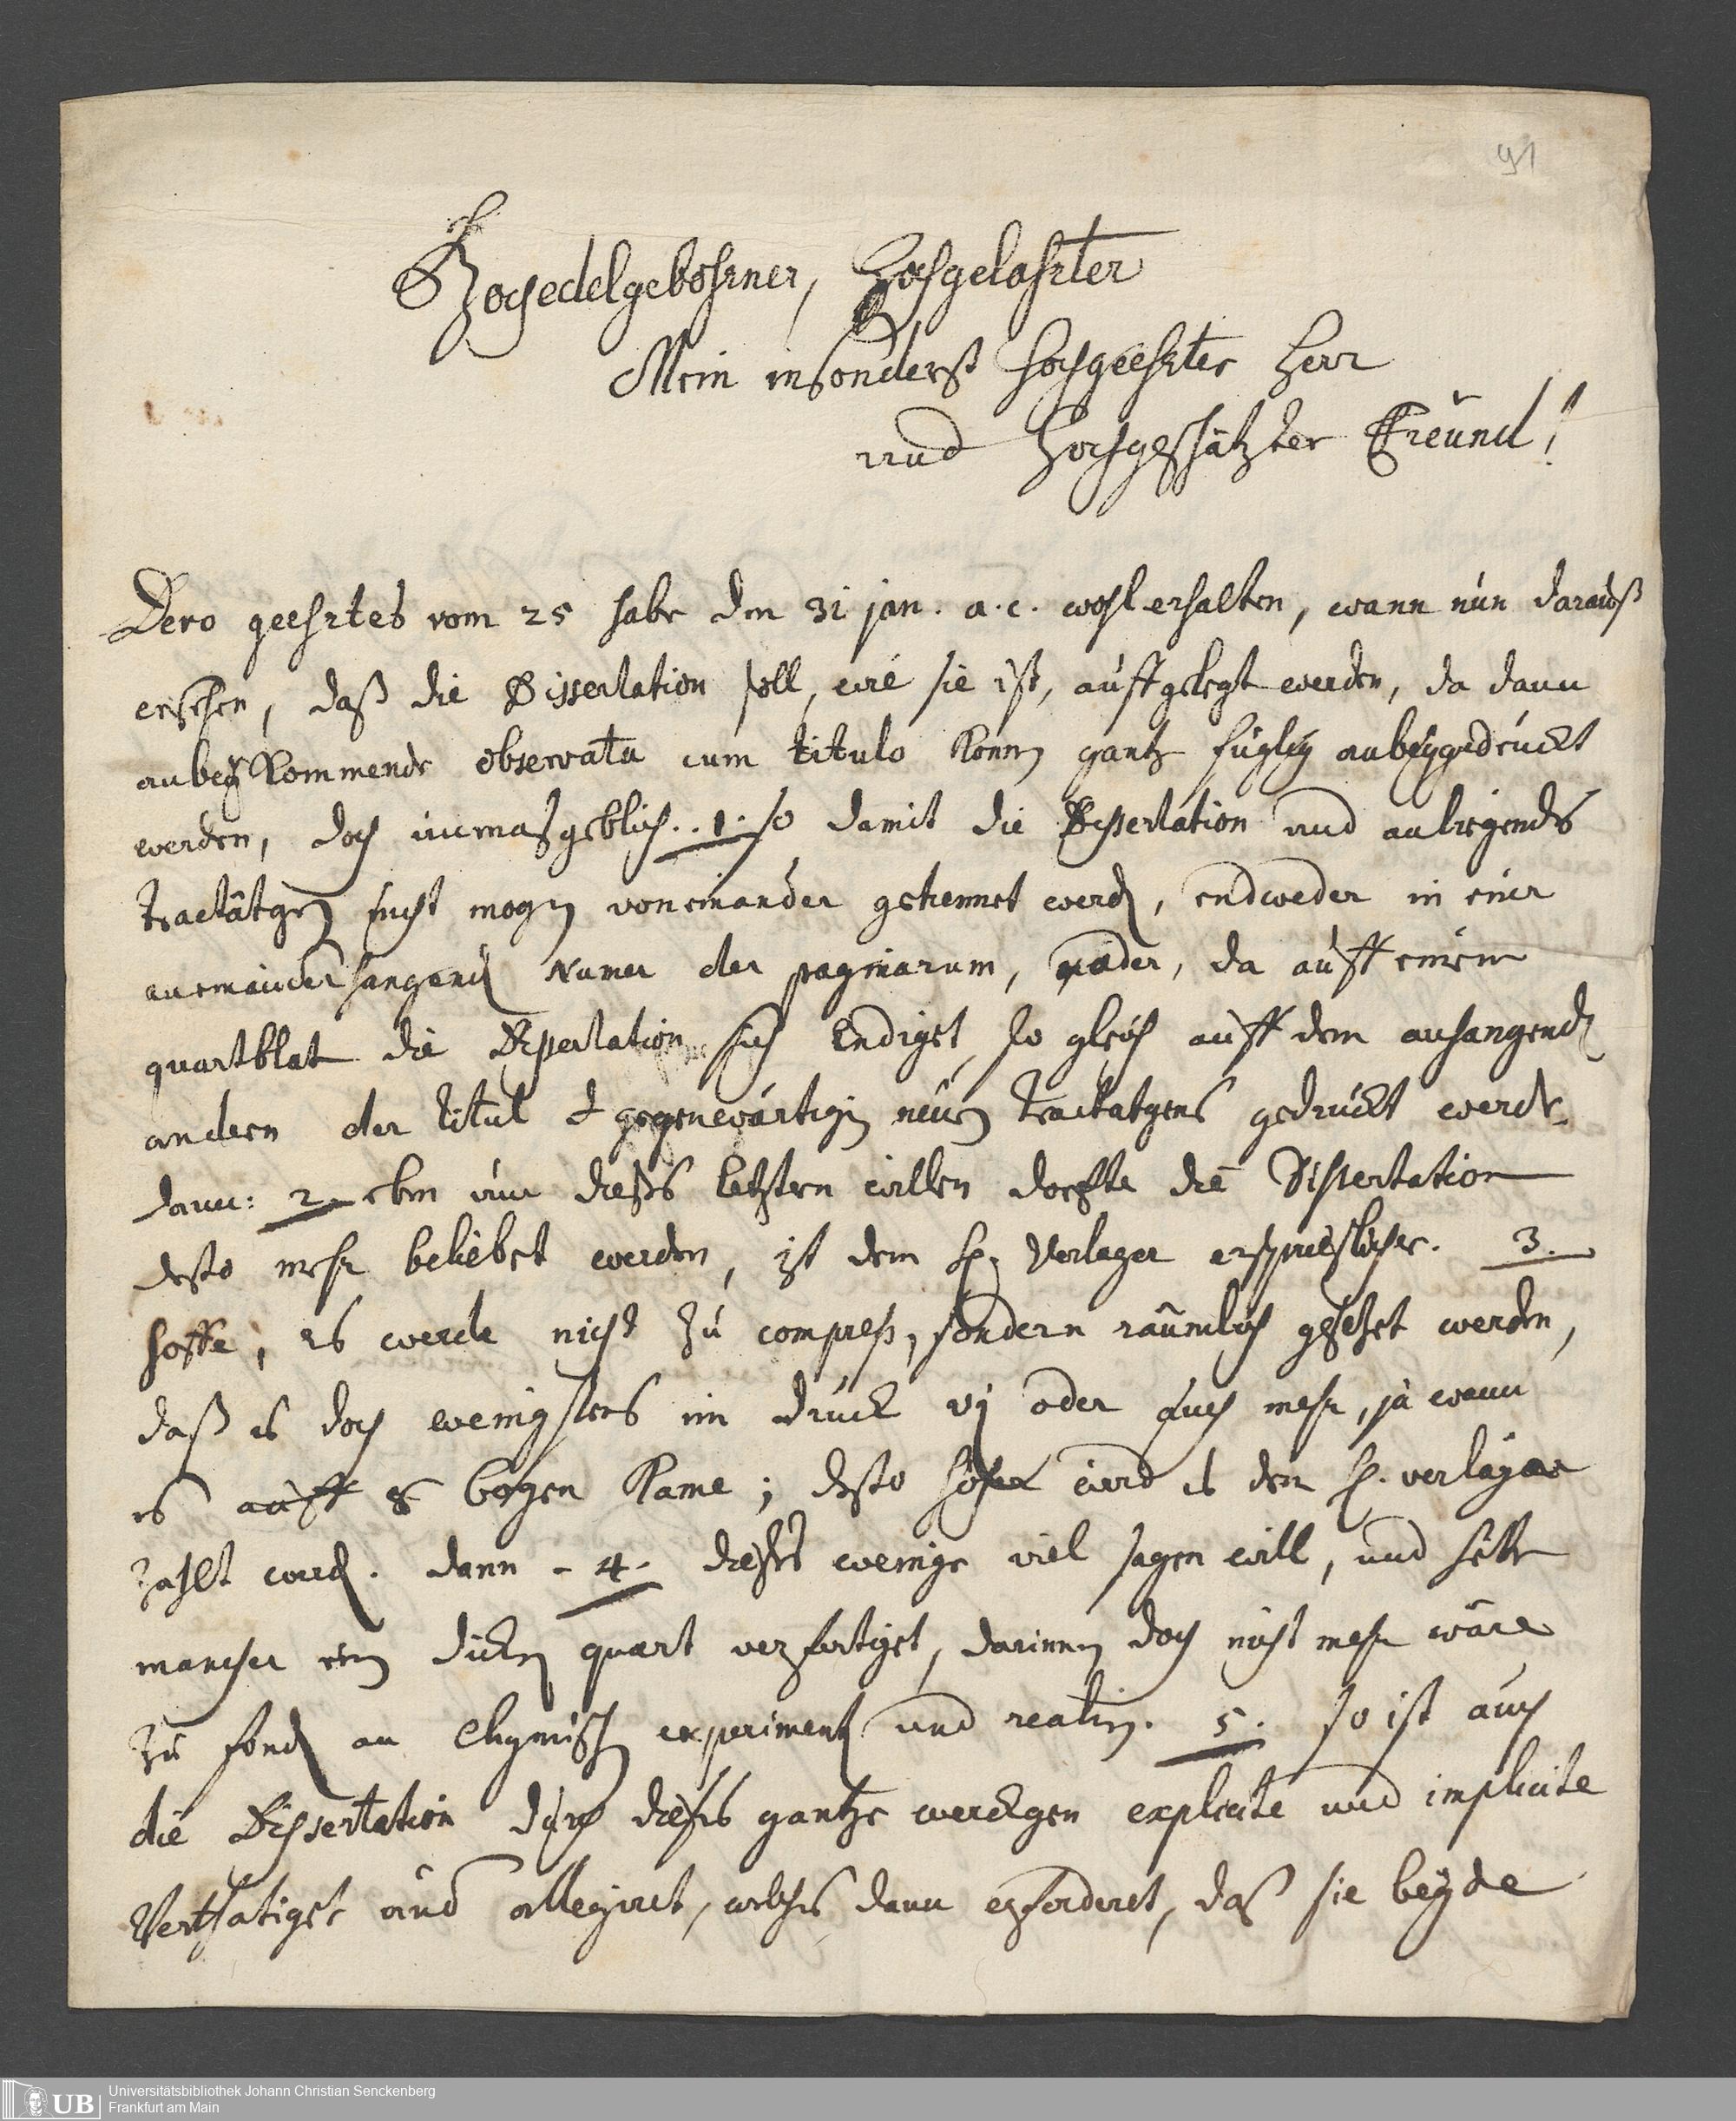 91
Hochedelgebohrner, Hochgelahrter
Mein insonderst hochgeehrter Herr
und Hochgeschätzter Freund!
Dero geehrtes vom 25 habe den 31 jan. a. c. wohl erhalten, wann nun darauß
ersehen, daß die Dissertation soll, wie sie ist, auffgelegt werden, da dann
anbeÿ kommende observata cum titulo konnen gantz füglich anbeÿgedruckt
werden, doch unmasgeblich. 1. so damit die Dissertation und anliegendes
tractätgen nicht mogen voneinander getrennet werden, endweder in einer
aneinander hangenden Numer der paginarum, oder, da auff einem
quartblat die Dissertation sich Endiget, so gleich auff dem anhangenden
andern der titul gegenwärtigen neuen tractatgens gedruckt werde.
dann: 2. eben um dieses letztern willen dorffte die Dissertation
desto mehr beliebet werden, ist dem H. Verlager erspriesslicher. 3.
hoffe, es werde nicht zu compress, sondern räumlich gesetzet werden,
daß es doch wenigstens im druck vj oder auch mehr, ja wann
es auff 8 bogen kame; desto höher wird es dem H. verläger
zahlt werden. dann - 4. dieses wenige viel sagen will, und hette
mancher ein dicken quart verfertiget, darinnen doch nicht mehr wäre
zu fonden an Chymischen experimenten und realien. 5. so ist auch
die Dissertation durch dieses gantze werckgen explicite und implicite
Verthatiget und allegiret, welches dann erforderet, das sie beÿde
UB
Universitätsbibliothek Johann Christian Senckenberg
Frankfurt am Main